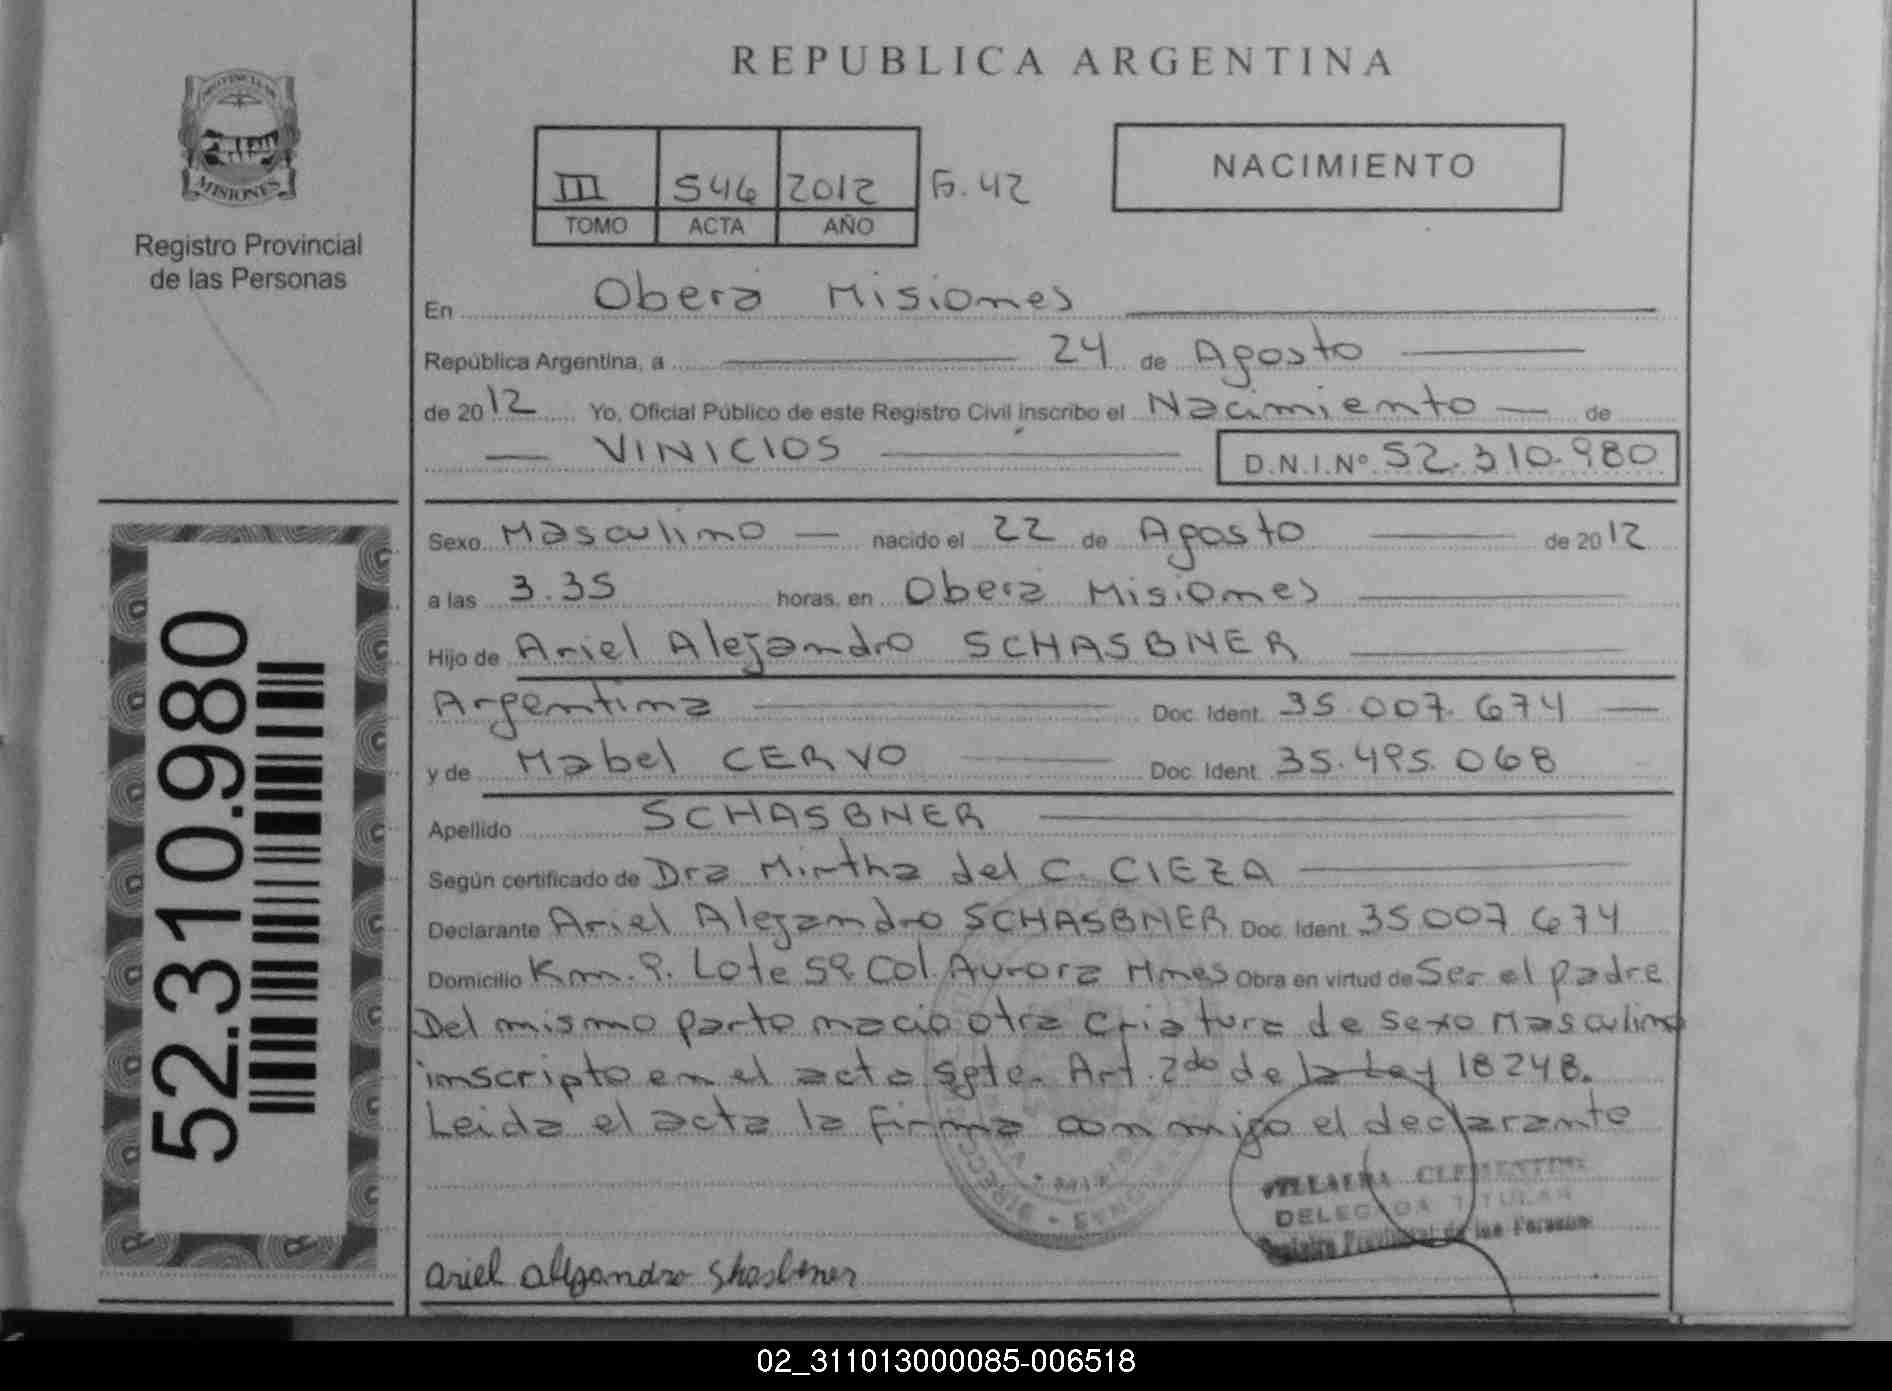 REPUBLICA ARGENTINA
PROVINCIA DE
MISIONES
Registro Provincial
de las Personas
III 546 2012 Fo. 42
TOMO ACTA AÑO
NACIMIENTO
En Oberá Misiones
República Argentina, a 24 de Agosto
de 2012 Yo, Oficial Público de este Registro Civil inscribo el Nacimiento de
VINICIOS D.N.I.Nº. 52.310.980
Sexo Masculino nacido el 22 de Agosto de 2012
a las 3.35 horas, en Oberá Misiones
Hijo de Ariel Alejandro SCHASBNER
Argentina Doc. Ident. 35.007.674
y de Mabel CERVO Doc. Ident. 35.495.068
Apellido SCHASBNER
Según certificado de Dra Mirtha del C. CIEZA
Declarante Ariel Alejandro SCHASBNER Doc. Ident. 35.007.674
Domicilio Km. 9. Lote 59. Col. Aurora Mnes Obra en virtud de Ser el padre
Del mismo parto nacio otra criatura de sexo Masculino
inscripto en el acta sgte. Art. 2do de la Ley 18248.
Leida el acta la firma conmigo el declarante
DELEGADA TITULAR
Registro Provincial de las Personas
Ariel alejandro Shasbner
52.310.980
02_311013000085-006518